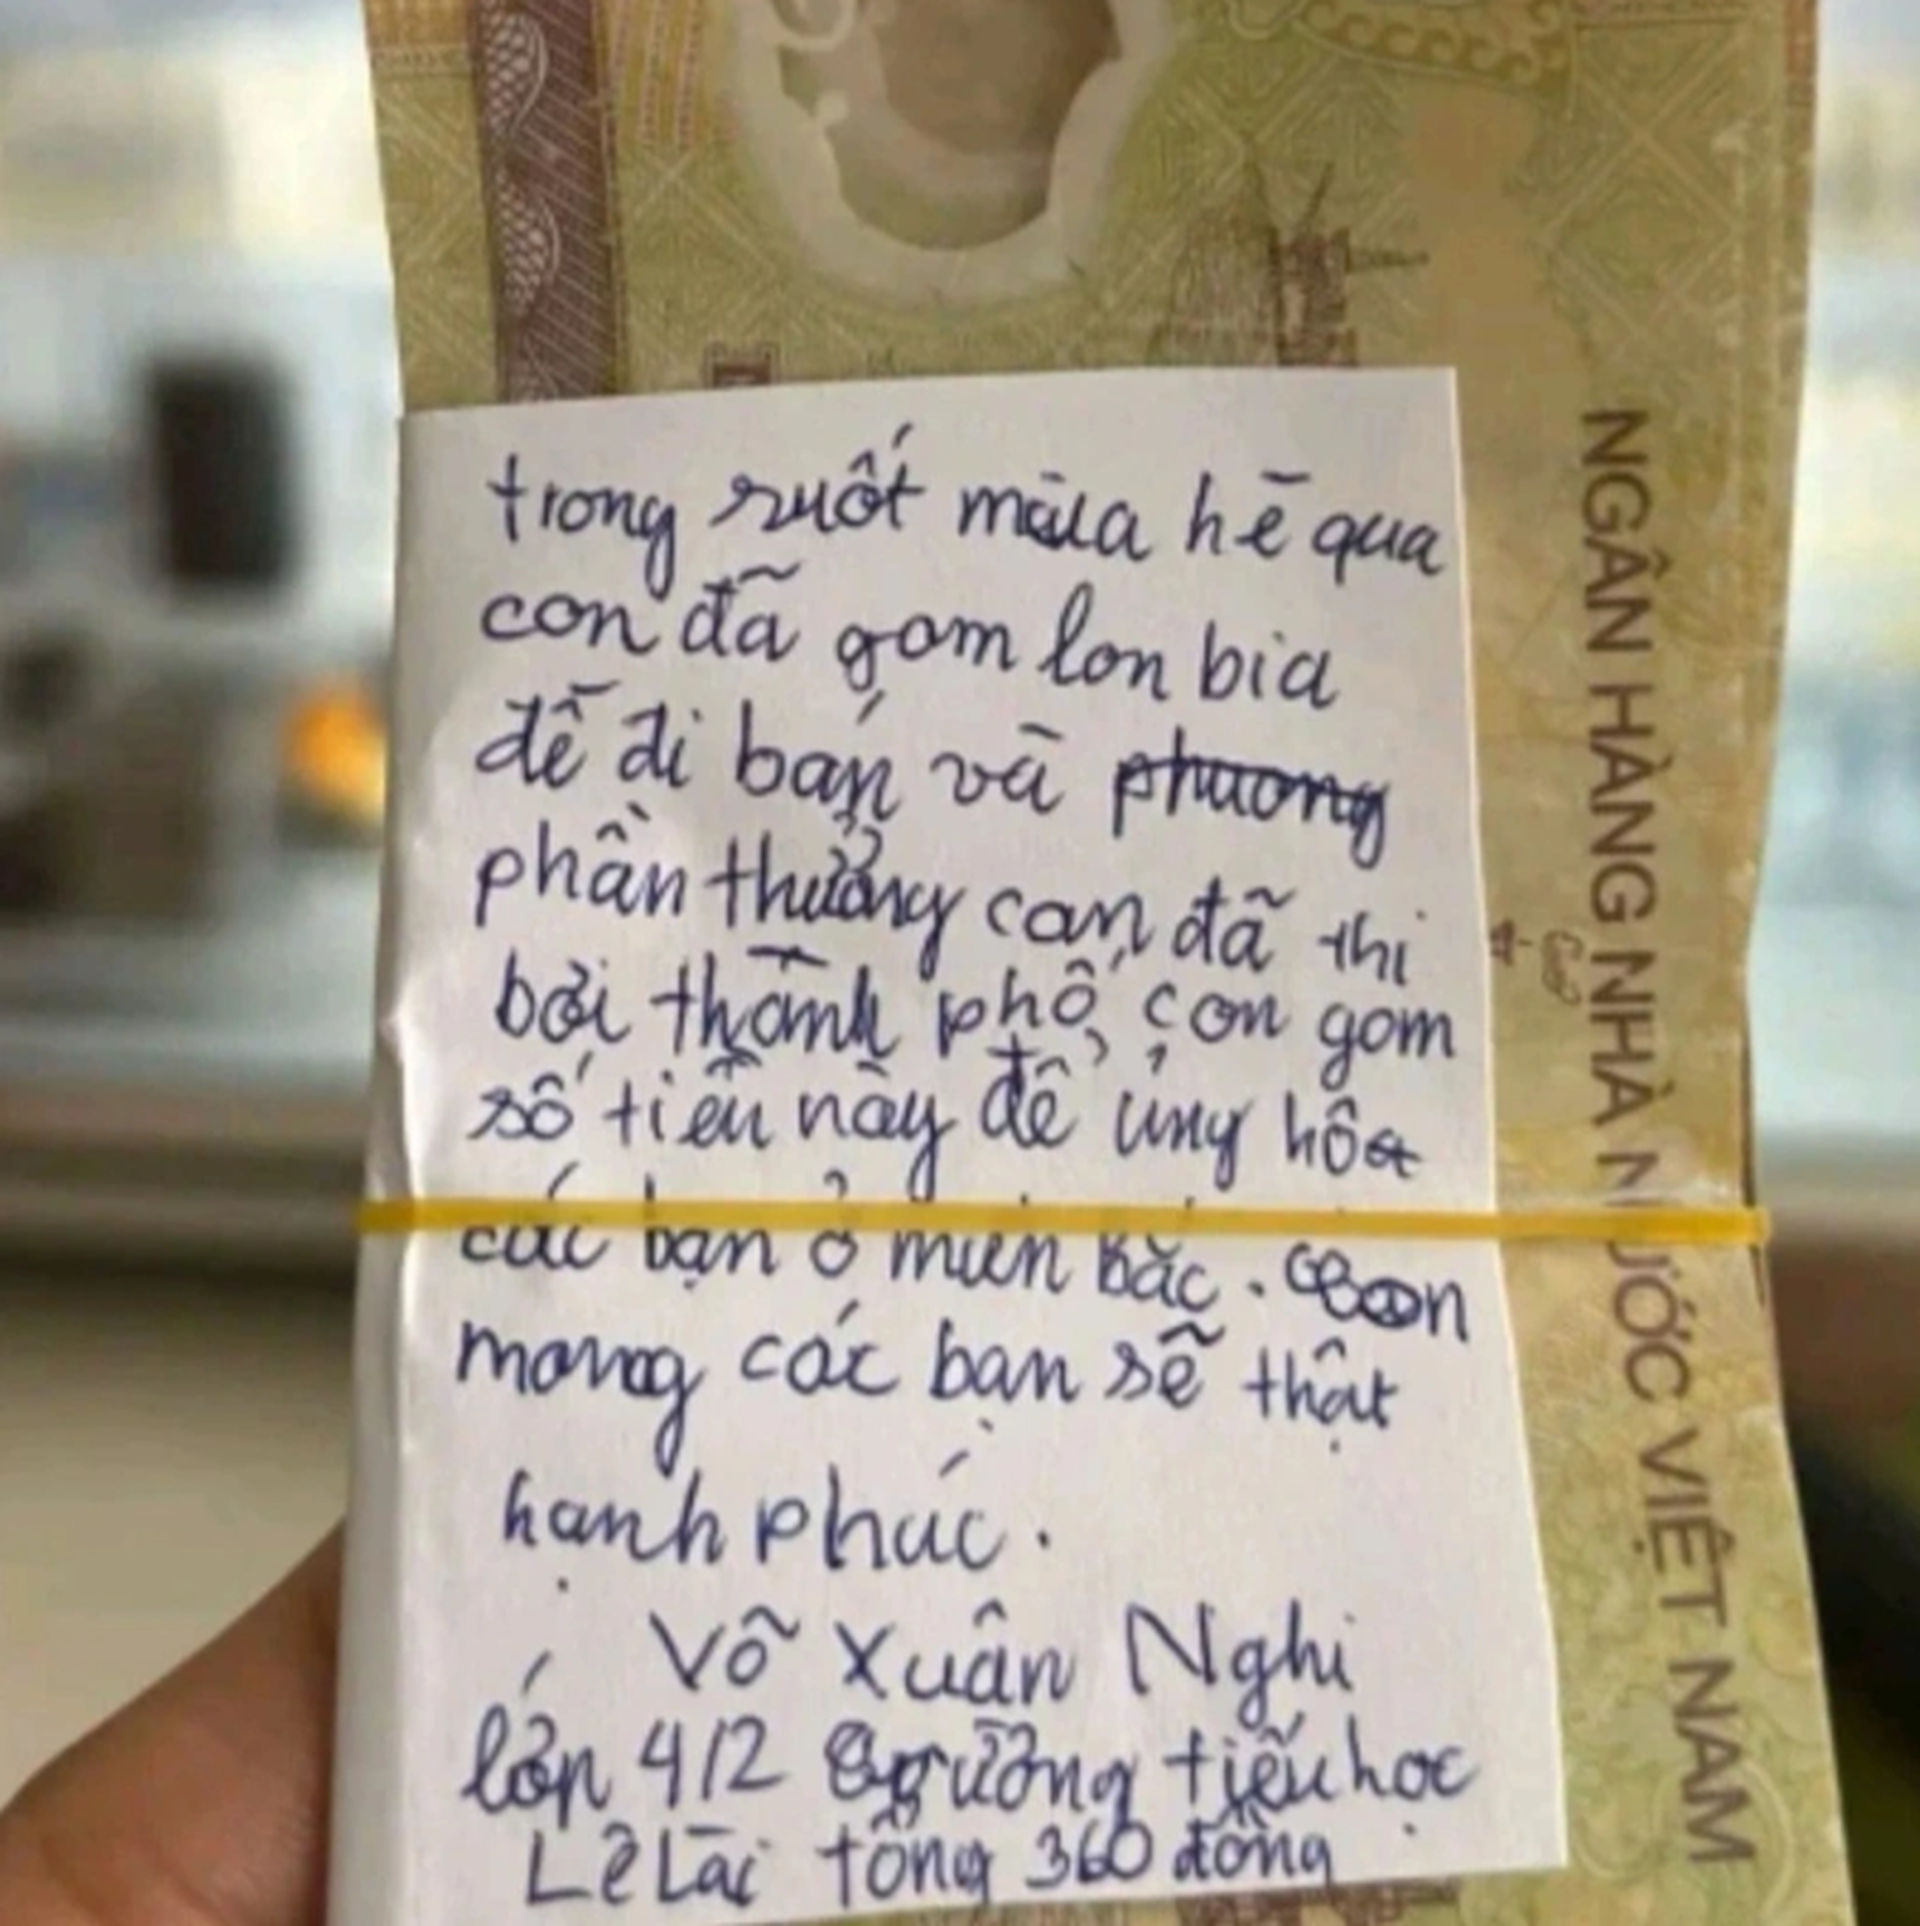 trong suốt mùa hè qua
con đã gom lon bia
để đi bán và phuong
phần thưởng con đã thi
bơi thành phố con gom
số tiền này để ủng hộ
các bạn ở miền Bắc. Con
mong các bạn sẽ thật
hạnh phúc.
Võ Xuân Nghi
lớp 4/2 trường tiểu học
Lê Lai tổng 360 đồng
NGÂN HÀNG NHÀ NƯỚC VIỆT NAM